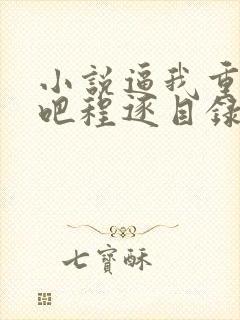 小説逼我重
吧程逐目錄
七寶酥